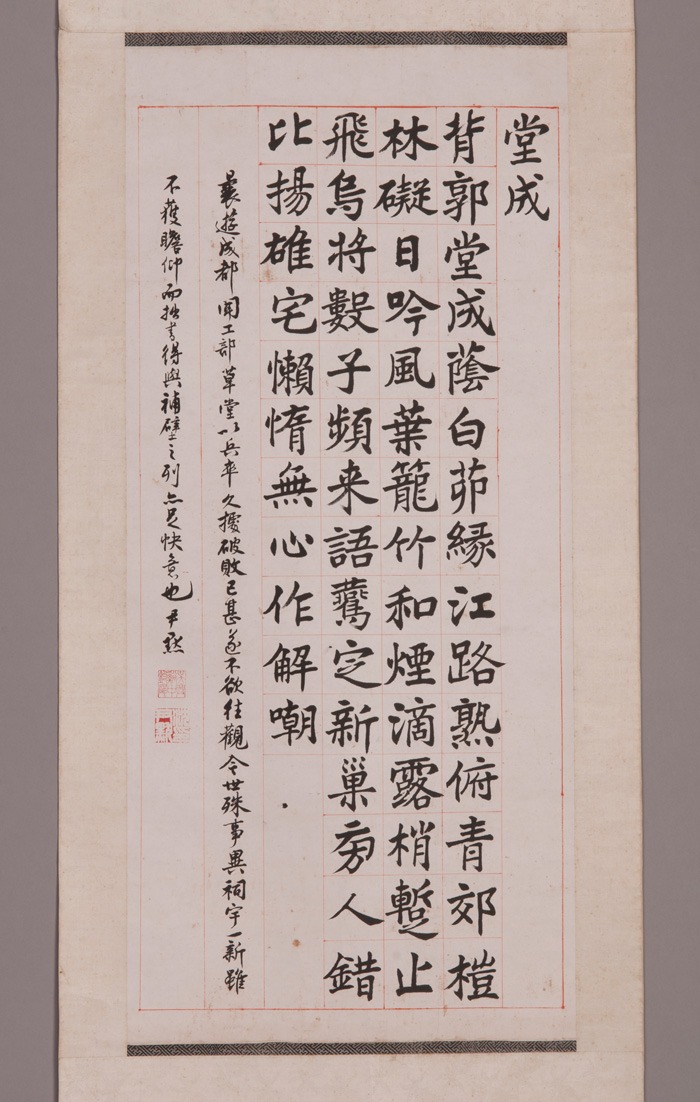 堂成
背郭堂成蔭白茆緣江路熟俯青郊榿
林礙日吟風葉籠竹和煙滴露梢蹔止
飛烏將數子頻来語鷰定新巢旁人錯
比揚雄宅懶惰無心作解嘲
曩遊成都聞工部草堂以兵卒久據破敗已甚遂不欲往觀今世殊事異祠宇一新雖
不獲瞻仰而拙書得與補壁之列亦足快意也尹默